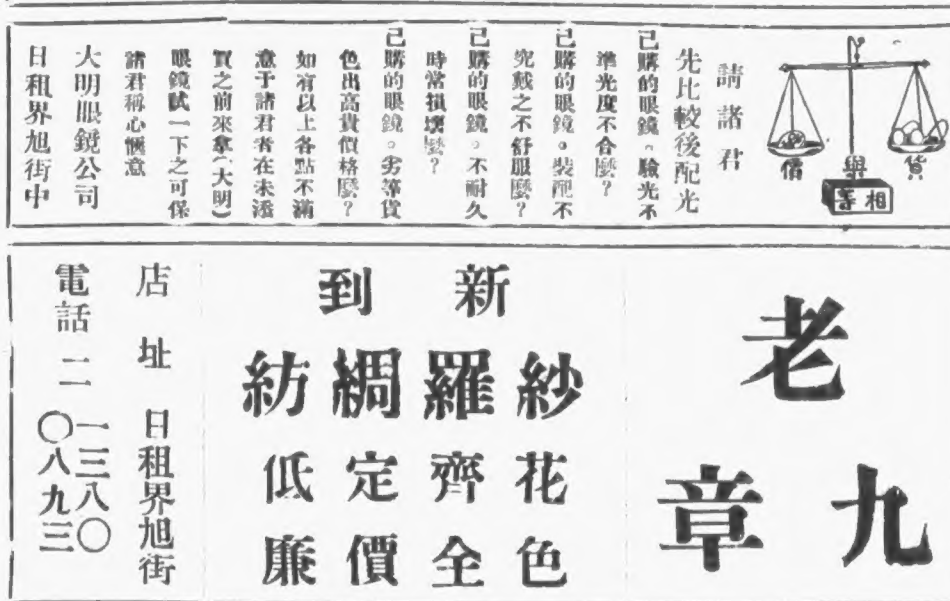 貨與價
相等
請諸君
先比較後配光
已購的眼鏡。驗光不
準光度不合麼?
已購的眼鏡。裝配不
究戴之不舒服麼?
已購的眼鏡。不耐久
時常損壞麼?
已購的眼鏡。劣等貨
色出高貴價格麼?
如有以上各點不滿
意于諸君者在未添
買之前來拿(大明)
眼鏡試一下之可保
諸君稱心愜意
大明眼鏡公司
日租界旭街中
老九章
新到
紗羅綢紡
花色齊全
定價低廉
店址 日租界旭街
電話 二 一三八〇
〇八九三